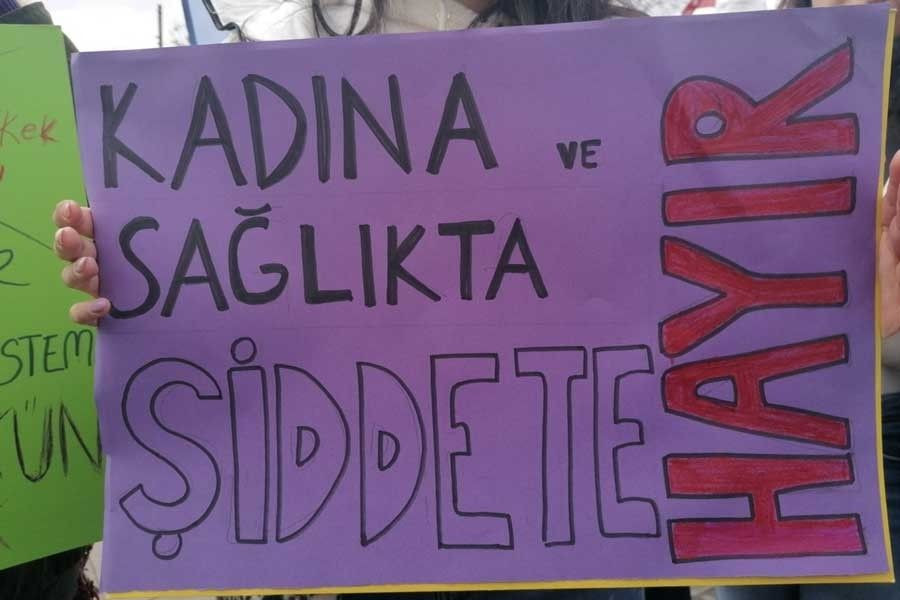 KADINA VE
SAĞLIKTA
ŞİDDETE
HAYIR
STEM